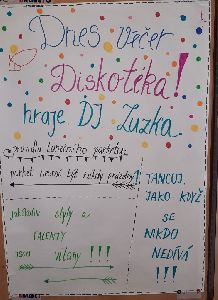 Dnes večer
Diskotéka!
hraje DJ Zuzka
pravidla tanečního parketu:
parket nesmí být nikdy prázdný
TANCUJ,
JAKO KDYŽ
SE
NIKDO
NEDÍVÁ
!!!
styly a
TALENTY
jsou vítány !!!